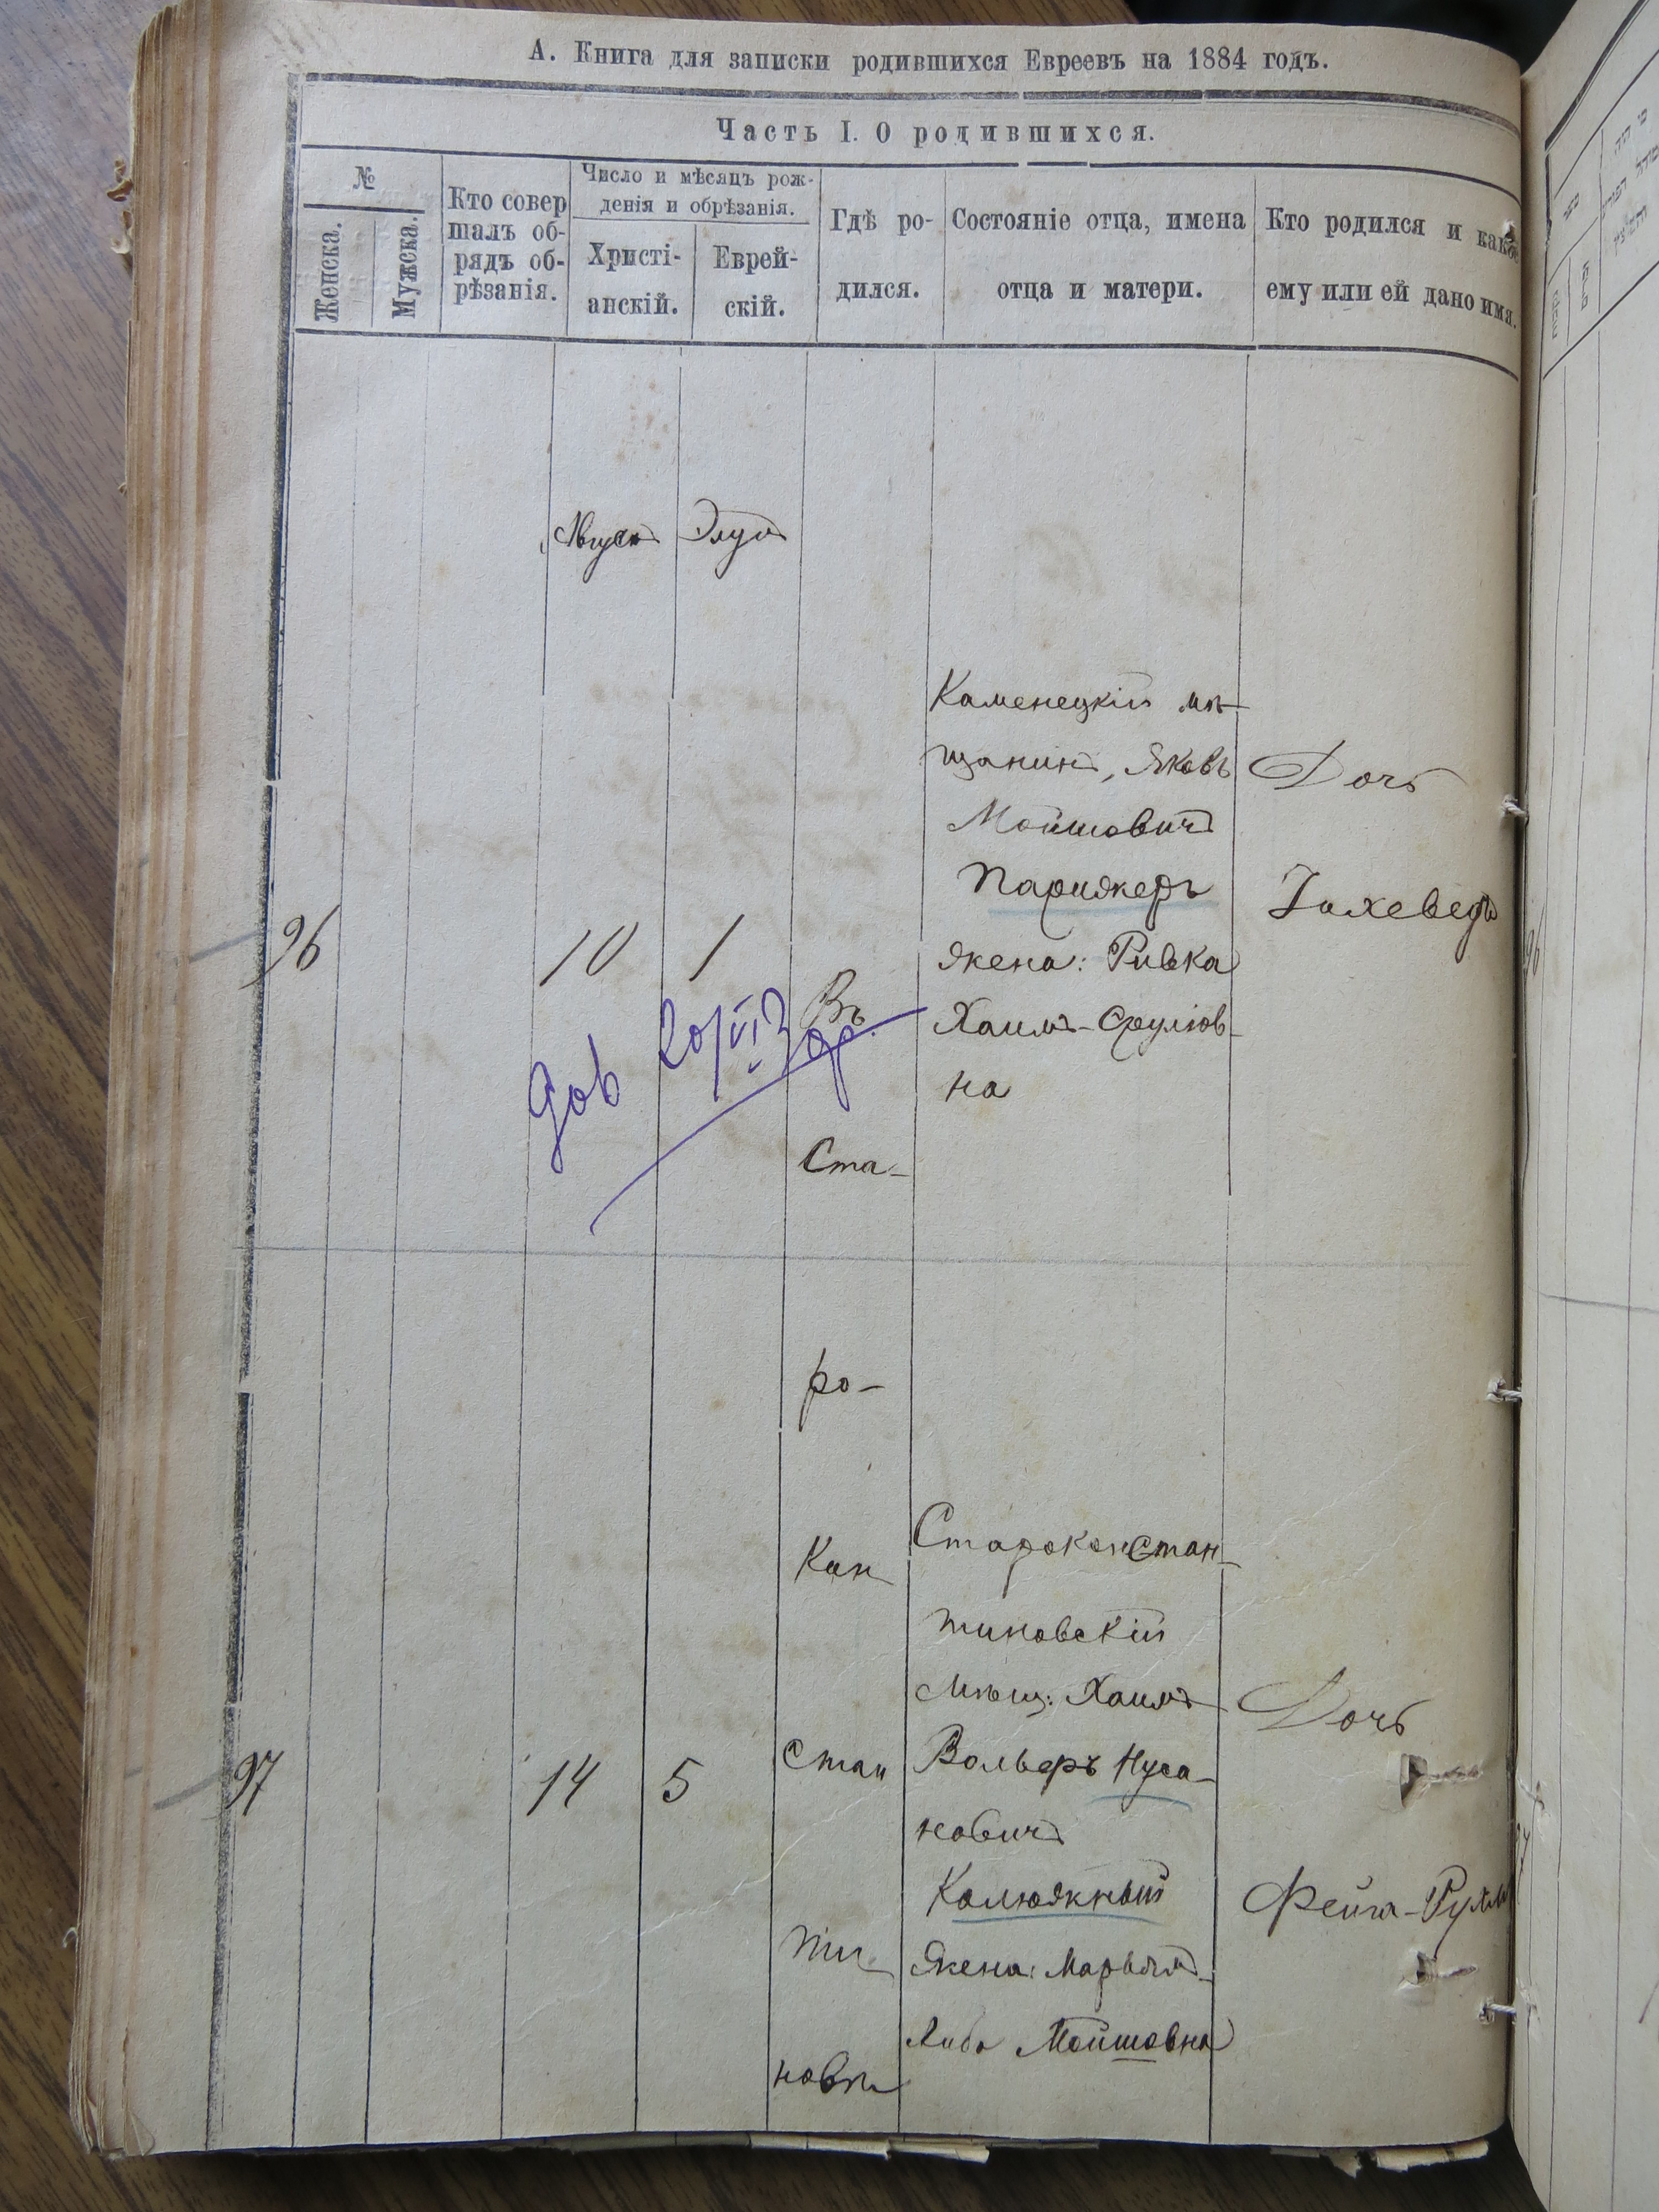 А. Книга для записки родившихся Евреевъ на 1884 годъ.
Часть I. О родившихся.
№
Женска.
Мужска.
Кто совер
шалъ об-
рядъ об-
рѣзанія.
Число и мѣсяцъ рож-
денія и обрѣзанія.
Христі-
анскій.
Еврей-
скій.
Гдѣ ро-
дился.
Состояніе отца, имена
отца и матери.
Кто родился и какое
ему или ей дано имя.
Августъ
Элулъ
96
10
1
Каменецкій мѣ-
щанинъ, Яковъ
Мойшовичъ
Парижеръ
жена: Ривка
Хаимъ-Срулюв-
на
Дочь
дов 20/VI
Въ
Ста-
ро-
Кон
стан
ти-
новѣ
97
14
5
Староконстан-
тиновскій
мѣщ: Хаимъ
Вольфръ Нуса-
новичъ
Калюжный
жена: Марьямъ-
Либа Мойшовна
Дочь